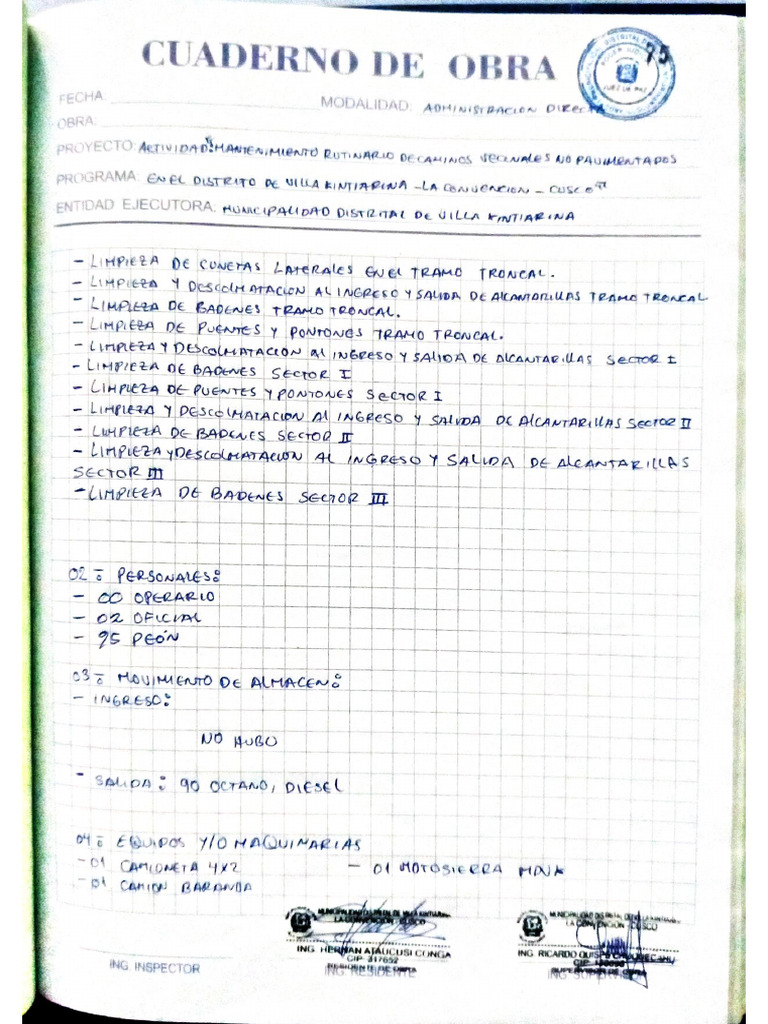 CUADERNO DE OBRA
95
JUEZ DE PAZ
FECHA:
MODALIDAD: ADMINISTRACION DIRECTA
OBRA:
PROYECTO: ACTIVIDAD: "MANTENIMIENTO RUTINARIO DE CAMINOS VECINALES NO PAVIMENTADOS
PROGRAMA: EN EL DISTRITO DE VILLA KINTIARINA - LA CONVENCION - CUSCO"
ENTIDAD EJECUTORA: MUNICIPALIDAD DISTRITAL DE VILLA KINTIARINA
- LIMPIEZA DE CUNETAS LATERALES EN EL TRAMO TRONCAL.
- LIMPIEZA Y DESCOLMATACION AL INGRESO Y SALIDA DE ALCANTARILLAS TRAMO TRONCAL
- LIMPIEZA DE BADENES TRAMO TRONCAL.
- LIMPIEZA DE PUENTES Y PONTONES TRAMO TRONCAL.
- LIMPIEZA Y DESCOLMATACION Al INGRESO Y SALIDA DE AlCANTARILLAS SECTOR I
- LIMPIEZA DE BADENES SECTOR I
- LIMPIEZA DE PUENTES Y PONTONES SECTOR I
- LIMPIEZA Y DESCOLMATACION Al INGRESO Y SALIDA DE AlCANTARILLAS SECTOR II
- LIMPIEZA DE BADENES SECTOR II
- LIMPIEZA Y DESCOLMATACION AL INGRESO Y SALIDA DE AlCANTARILLAS
SECTOR III
- LIMPIEZA DE BADENES SECTOR III
02: PERSONALES:
- 00 OPERARIO
- 02 OFICIAL
- 25 PEÓN
03: MOVIMIENTO DE ALMACEN:
- INGRESO:
NO HUBO
- SALIDA: 90 OCTANO, DIESEL
04: EQUIPOS Y/O MAQUINARIAS
- 01 CAMIONETA 4X2 - 01 MOTOSIERRA
- 01 CAMION BARANDA
MUNICIPALIDAD DISTRITAL DE VILLA KINTIARINA
LA CONVENCION - CUSCO
ING. HERNAN ATAUCUSI CONGA
CIP 317652
RESIDENTE DE OBRA
MUNICIPALIDAD DISTRITAL DE VILLA KINTIARINA
LA CONVENCION - CUSCO
ING. RICARDO QUISPE
SUPERVISOR DE OBRA
ING. INSPECTOR
ING. RESIDENTE
ING. SUPERVISOR